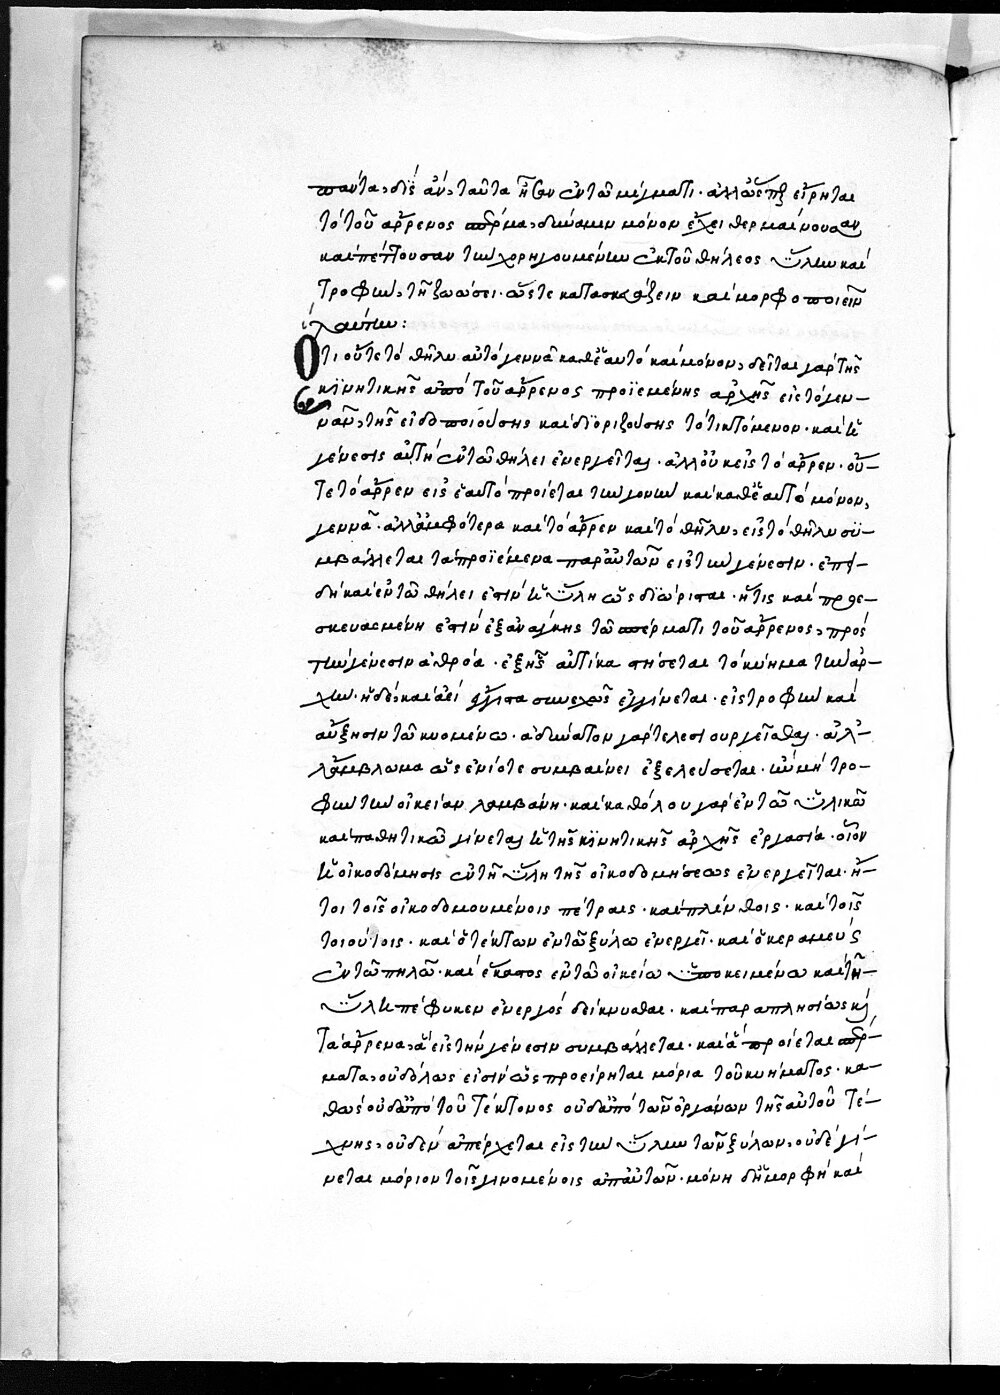 πάντα, διὸ ἀν, ταῦτα ἦσαν ἐν τῷ μέγματι. ἀλλ' ὥσπερ εἴρηται
τὸ τοῦ ἄρρενος σπέρμα, δύναμιν μόνον ἔχει θερμαίνουσαν
καὶ πέττουσαν τὴν χορηγουμένην ἐκ τοῦ θήλεος ὕλην καὶ
τροφὴν, τῇ ζωώσει. ὥστε κατασκευάζειν καὶ μορφοποιεῖν
αὐτήν:
Ὅτι οὔτε τὸ θῆλυ αὐτὸ γεννᾷ καθ' ἑαυτὸ καὶ μόνον, δεῖται γὰρ τῆς
κινητικῆς ἀπὸ τοῦ ἄρρενος προϊεμένης ἀρχῆς εἰς τὸ γεν-
νᾶν, τῆς εἰδοποιούσης καὶ διοριζούσης τὸ τικτόμενον. καὶ ἡ
γένεσις αὐτὴ ἐν τῷ θήλει ἐνεργεῖται. ἀλλ' οὐκ εἰς τὸ ἄρρεν. οὔ-
τε τὸ ἄρρεν εἰς ἑαυτὸ προΐεται τὴν γονὴν καὶ καθ' ἑαυτὸ μόνον,
γεννᾷ. ἀλλ' ἀμφότερα καὶ τὸ ἄρρεν καὶ τὸ θῆλυ, εἰς τὸ θῆλυ συ-
μβάλλεται τὰ προϊέμενα παρ' αὐτῶν εἰς τὴν γένεσιν. ἐπει-
δὴ καὶ ἐν τῷ θήλει ἐστὶν ἡ ὕλη ὡς διώρισται. ἥτις καὶ προε-
σκευασμένη ἐστὶν ἐξ ἀνάγκης τῷ σπέρματι τοῦ ἄρρενος, πρὸς
τὴν γένεσιν ἀθρόα. ἐξ ἧς αὐτίκα στήσεται τὸ κύημα τὴν ἀρ-
χήν. ἡ δὲ, καὶ ἀεὶ συνεχῶς ἐγγίνεται. εἰς τροφὴν καὶ
αὔξησιν τῷ κυομένῳ. ἀδύνατον γὰρ τελεσιουργεῖσθαι. ἀλλ'
ἄμβλωμα ὡς ἐνίοτε συμβαίνει ἐξελεύσεται. ἢν μὴ τρο-
φὴν τὴν οἰκείαν λαμβάνῃ. καὶ καθόλου γὰρ ἐν τῷ ὑλικῷ
καὶ παθητικῷ γίνεται ἡ τῆς κινητικῆς ἀρχῆς ἐργασία. οἷον
ἡ οἰκοδόμησις ἐν τῇ ὕλῃ τῆς οἰκοδομήσεως ἐνεργεῖται. ἤ-
τοι τοῖς οἰκοδομουμένοις πέτραις. καὶ πλίνθοις. καὶ τοῖς
τοιούτοις. καὶ ὁ τέκτων ἐν τῷ ξύλῳ ἐνεργεῖ. καὶ ὁ κεραμεὺς
ἐν τῷ πηλῷ. καὶ ἕκαστος ἐν τῷ οἰκείῳ ὑποκειμένῳ καὶ τῇ
ὕλῃ πέφυκεν ἐνεργὸς δείκνυσθαι. καὶ παραπλησίως καὶ
τὰ ἄρρενα, ἃ εἰς τὴν γένεσιν συμβάλλεται. καὶ ἃ προΐεται σπέρ-
ματα, οὐδόλως εἰσὶν ὡς προείρηται μόρια τοῦ κυήματος. κα-
θὼς οὐδ' ἀπὸ τοῦ τέκτονος οὐδ' ἀπὸ τῶν ὀργάνων τῆς αὐτοῦ τέ-
χνης, οὐδὲν ἀπέρχεται εἰς τὴν ὕλην τῶν ξύλων, οὐδὲ γί-
νεται μόριον τοῖς γινομένοις ἀπ' αὐτῶν. μόνη δ' ἡ μορφὴ καὶ